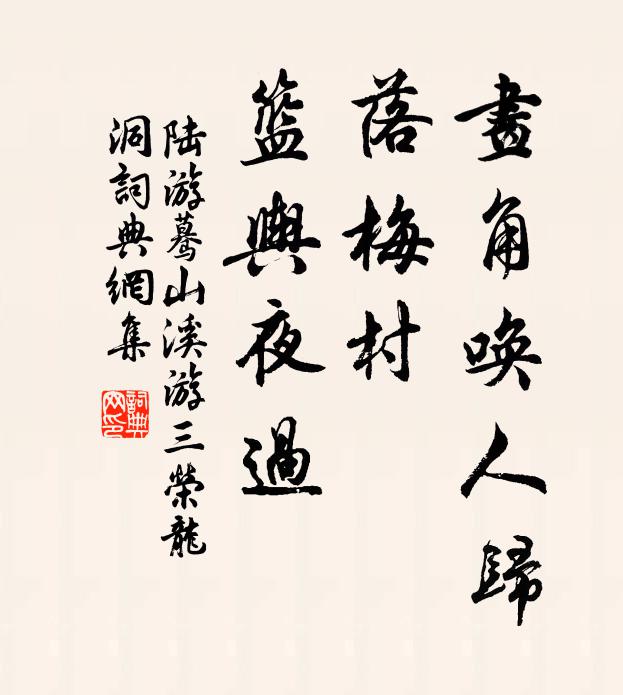 畫角喚人歸
落梅村
籃輿夜過
陸游驀山溪游三榮龍
洞詞典網集
詞典網印